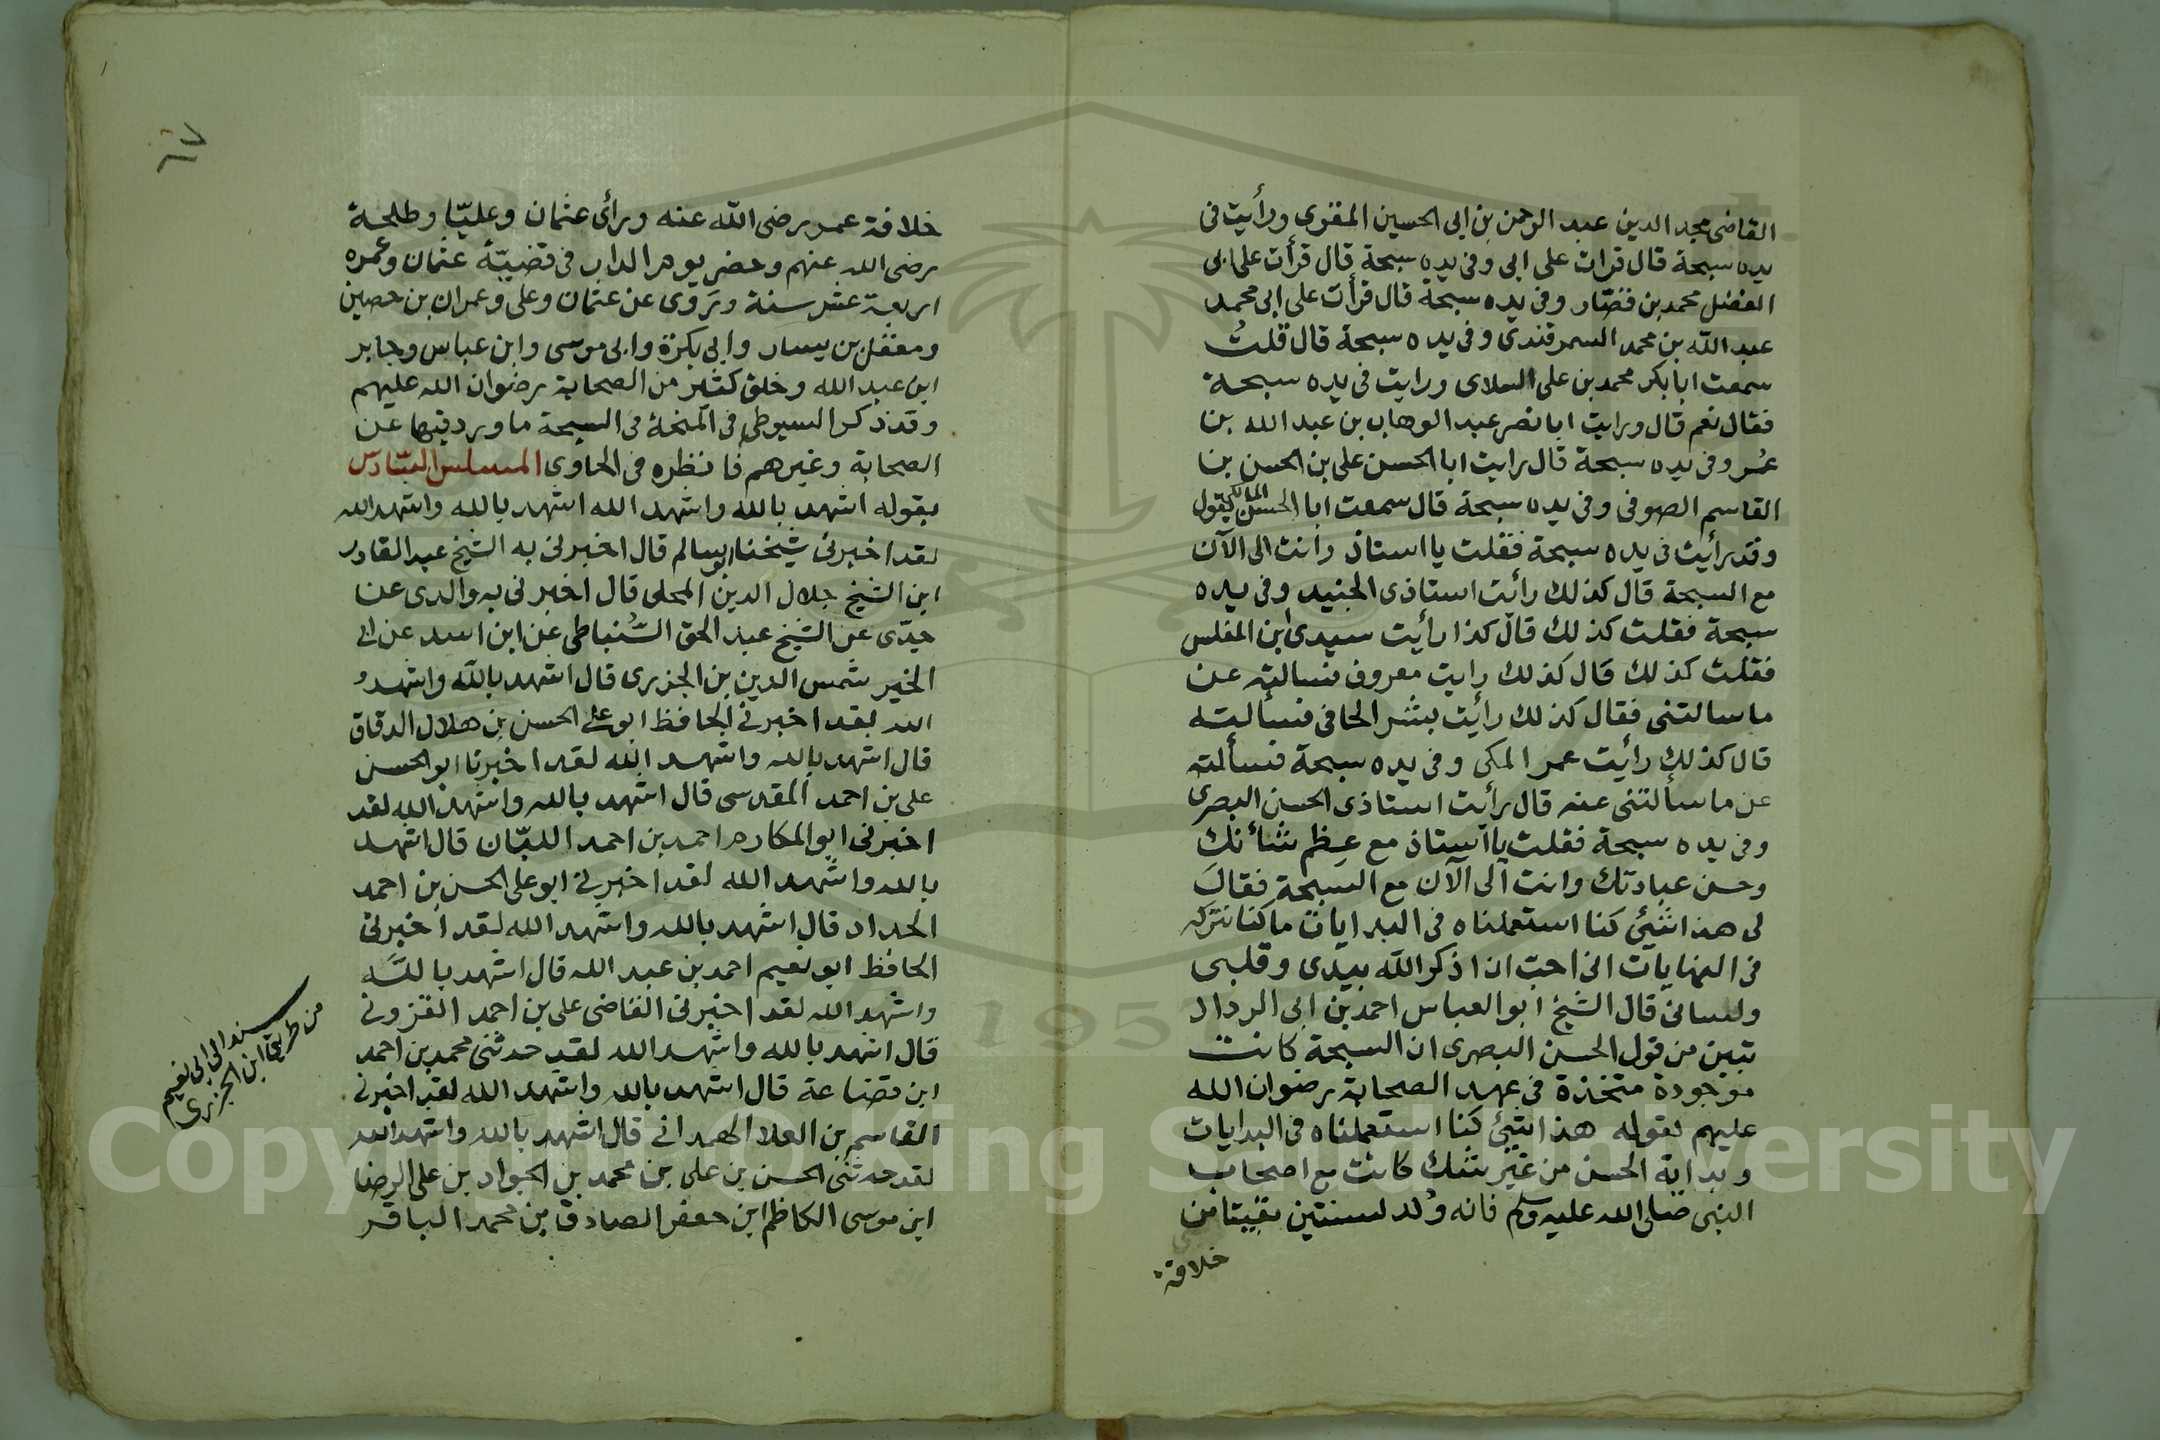 القاضى مجد الدين عبد الرحمن بن ابى الحسين المقرى ورأيت فى
يده سبحة قال قرات على ابى وفى يده سبحة قال قرأت على ابى
الفضل محمد بن فضار وفى يده سبحة قال قرأت على ابى محمد
عبد الله بن محمد السمرقندى وفى يده سبحة قال قلت
سمعت ابا بكر محمد بن على السلاى ورايت فى يده سبحة
فقال نعم قال ورايت ابا نصر عبد الوهاب بن عبد الله بن
عمر وفى يده سبحة قال رايت ابا الحسن على بن الحسن بن
القاسم الصوفى وفى يده سبحة قال سمعت ابا الحسن المالكى يقول
وقد رأيت فى يده سبحة فقلت يا استاذ وانت الى الآن
مع السبحة قال كذلك رأيت استاذى الجنيد وفى يده
سبحة فقلت كذلك قال كذا رأيت سيدى ابن المفلس
فقلت كذلك قال كذلك رايت معروف فسالته عن
ما سالتنى فقال كذلك رأيت بشر الحافى فسألته
قال كذلك رأيت عمر المكى وفى يده سبحة فسألته
عن ما سألتنى عنه قال رأيت استاذى الحسن البصرى
وفى يده سبحة فقلت يا استاذ مع عظم شأنك
وحسن عبادتك وانت الى الآن مع السبحة فقال
لى هذا شئ كنا استعملناه فى البدايات ما كنا نتركه
فى النهايات انى احب ان اذكر الله بيدى وقلبى
ولسانى قال الشيخ ابو العباس احمد بن ابى الرداد
تبين من قول الحسن البصرى ان السبحة كانت
موجودة متخذة فى عهد الصحابة رضوان الله
عليهم لقوله هذا شئ كنا استعملناه فى البدايات
وبداية الحسن من غير شك كانت مع اصحاب
النبى صلى الله عليه وسلم فانه ولد لسنتين بقيتا من
خلافة
٦٧
خلافة عمر رضى الله عنه ورأى عثمان وعليّا وطلحة
رضى الله عنهم وحضر يوم الدار فى قضيّة عثمان وعمره
اربعة عشر سنة ورَوى عن عثمان وعلى وعمران بن حصين
ومعقل بن يسار وابى بكرة وابى موسى وابن عباس وجابر
ابن عبد الله وخلق كثير من الصحابة رضوان الله عليهم
وقد ذكر السيوطى فى المنحة فى السبحة ما ورد فيها عن
الصحابة وغيرهم فانظره فى الحاوى المسلسل السّادس
بقوله اشهد بالله واشهد الله اشهد بالله واشهد الله
لقد اخبرنى شيخنا ابو سالم قال اخبرنى به الشيخ عبد القادر
ابن الشيخ جلال الدين المحلى قال اخبرنى به والدى عن
جدّى عن الشيخ عبد الحق السُنباطى عن ابن اسد عن ابى
الخير شمس الدين بن الجزرى قال اشهد بالله واشهد
الله لقد اخبرنى الحافظ ابو على الحسن بن هلال الدقاق
قال اشهد بالله واشهد الله لقد اخبرنا ابو الحسن
على بن احمد المقدسى قال اشهد بالله واشهد الله لقد
اخبرنى ابو المكارم احمد بن احمد اللبّان قال اشهد
بالله واشهد الله لقد اخبرنى ابو على الحسن بن احمد
الحداد قال اشهد بالله واشهد الله لقد اخبرنى
الحافظ ابو نعيم احمد بن عبد الله قال اشهد بالله
واشهد الله لقد اخبرنى القاضى على بن احمد القزونى
قال اشهد بالله واشهد الله لقد حدثنى محمد بن احمد
ابن قضاعة قال اشهد بالله واشهد الله لقد اخبرنى
القاسم بن العلا الهمدانى قال اشهد بالله واشهد الله
لقد حدثنى الحسن بن على بن محمد بن الجواد بن على الرضا
ابن موسى الكاظم ابن جعفر الصادق بن محمد الباقر
سند الى ابى نعيم
من طريق ابن الجزرى
1957
Copyright © King Saud University